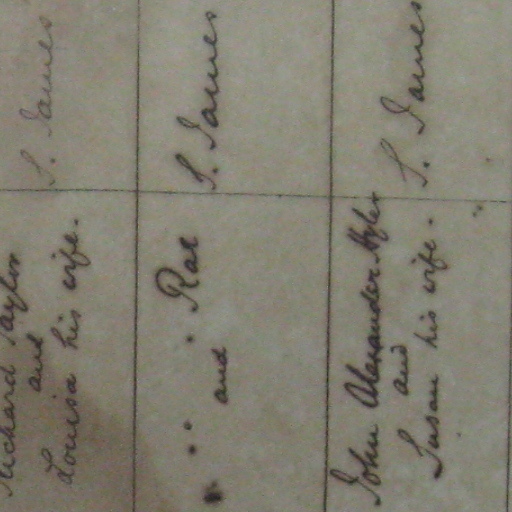 Richard Taylor
and
Louisa his wife.
S. James
Rat
and
S. James
John Alexander
and
Susan his wife.
S. James